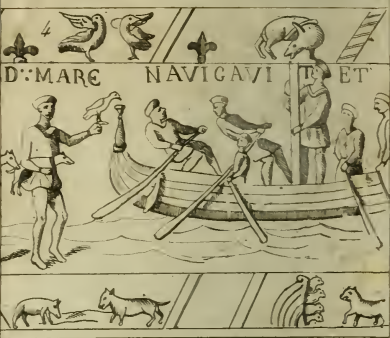 4
D∵ MARE NAVIGAVIT ET